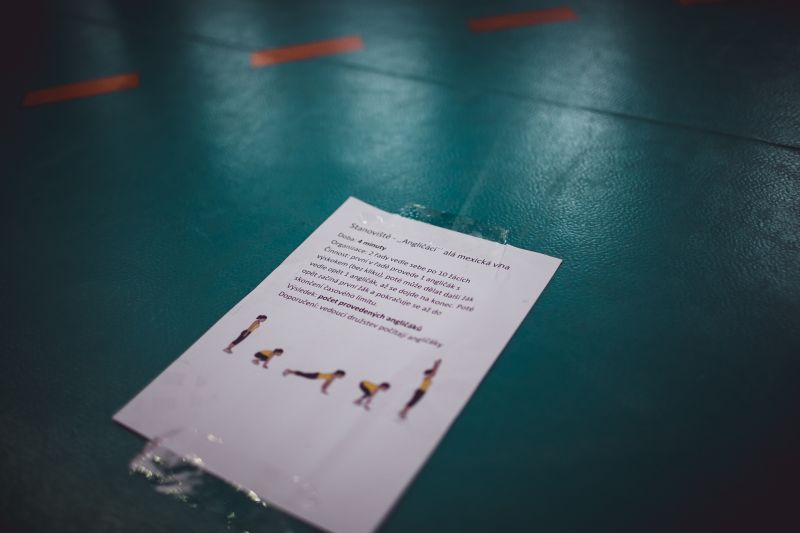 Stanoviště - ,,Angličáci" alá mexická vlna
Doba: 4 minuty
Organizace: 2 řady vedle sebe po 10 žácích
Činnost: první v řadě provede 1 angličák s
výskokem (bez kliku), poté může dělat další žák
vedle opět 1 angličák, až se dojde na konec. Poté
opět začíná první žák a pokračuje se až do
skončení časového limitu.
Výsledek: počet provedených angličáků
Doporučení: vedoucí družstev počítají angličáky